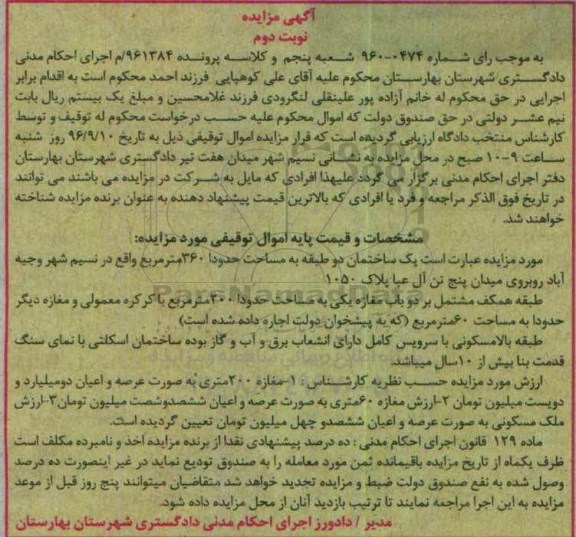 آگهی مزایده
نوبت دوم
به موجب رای شماره ۰۴۷۴-۹۶۰ شعبه پنجم و کلاسه پرونده ۹۶۱۳۸۴/م اجرای احکام مدنی
دادگستری شهرستان بهارستان محکوم علیه آقای علی کوهپایی فرزند احمد محکوم است به اقدام برابر
اجرایی در حق محکوم له خانم آزاده پور علینقلی لنگرودی فرزند غلامحسین و مبلغ یک بیستم ریال بابت
نیم عشر دولتی در حق صندوق دولت که اموال محکوم علیه حسب درخواست محکوم له توقیف و توسط
کارشناس منتخب دادگاه ارزیابی گردیده است که قرار مزایده اموال توقیفی ذیل به تاریخ ۹۶/۹/۱۰ روز شنبه
ساعت ۹-۱۰ صبح در محل مزایده به نشانی نسیم شهر میدان هفت تیر دادگستری شهرستان بهارستان
دفتر اجرای احکام مدنی برگزار می گردد علیهذا افرادی که مایل به شرکت در مزایده می باشند می توانند
در تاریخ فوق الذکر مراجعه و فرد یا افرادی که بالاترین قیمت پیشنهاد دهنده به عنوان برنده مزایده شناخته
خواهند شد.
مشخصات و قیمت پایه اموال توقیفی مورد مزایده:
مورد مزایده عبارت است یک ساختمان دو طبقه به مساحت حدودا ۳۶۰مترمربع واقع در نسیم شهر وجیه
آباد روبروی میدان پنج تن آل عبا پلاک ۱۰۵۰
طبقه همکف مشتمل بر دو باب مغازه یکی به مساحت حدودا ۲۰۰مترمربع با کرکره معمولی و مغازه دیگر
حدودا به مساحت ۶۰مترمربع (که به پیشخوان دولت اجاره داده شده است)
طبقه بالامسکونی با سرویس کامل دارای انشعاب برق و آب و گاز بوده ساختمان اسکلتی با نمای سنگ
قدمت بنا بیش از ۱۰سال میباشد
ارزش مورد مزایده حسب نظریه کارشناس: ۱-مغازه ۲۰۰متری به صورت عرصه و اعیان دومیلیارد و
دویست میلیون تومان ۲-ارزش مغازه ۶۰متری به صورت عرصه و اعیان ششصدوشصت میلیون تومان۳-ارزش
ملک مسکونی به صورت عرصه و اعیان ششصدو چهل میلیون تومان تعیین گردیده است.
ماده ۱۲۹ قانون اجرای احکام مدنی: ده درصد پیشنهادی نقدا از برنده مزایده اخذ و نامبرده مکلف است
ظرف یکماه از تاریخ مزایده باقیمانده ثمن مورد معامله را به صندوق تودیع نماید در غیر اینصورت ده درصد
وصول شده به نفع صندوق دولت ضبط و مزایده تجدید خواهد شد متقاضیان میتوانند پنج روز قبل از موعد
مزایده به این اجرا مراجعه نمایند تا ترتیب بازدید آنان از محل مزایده داده شود.
مدیر / دادورز اجرای احکام مدنی دادگستری شهرستان بهارستان